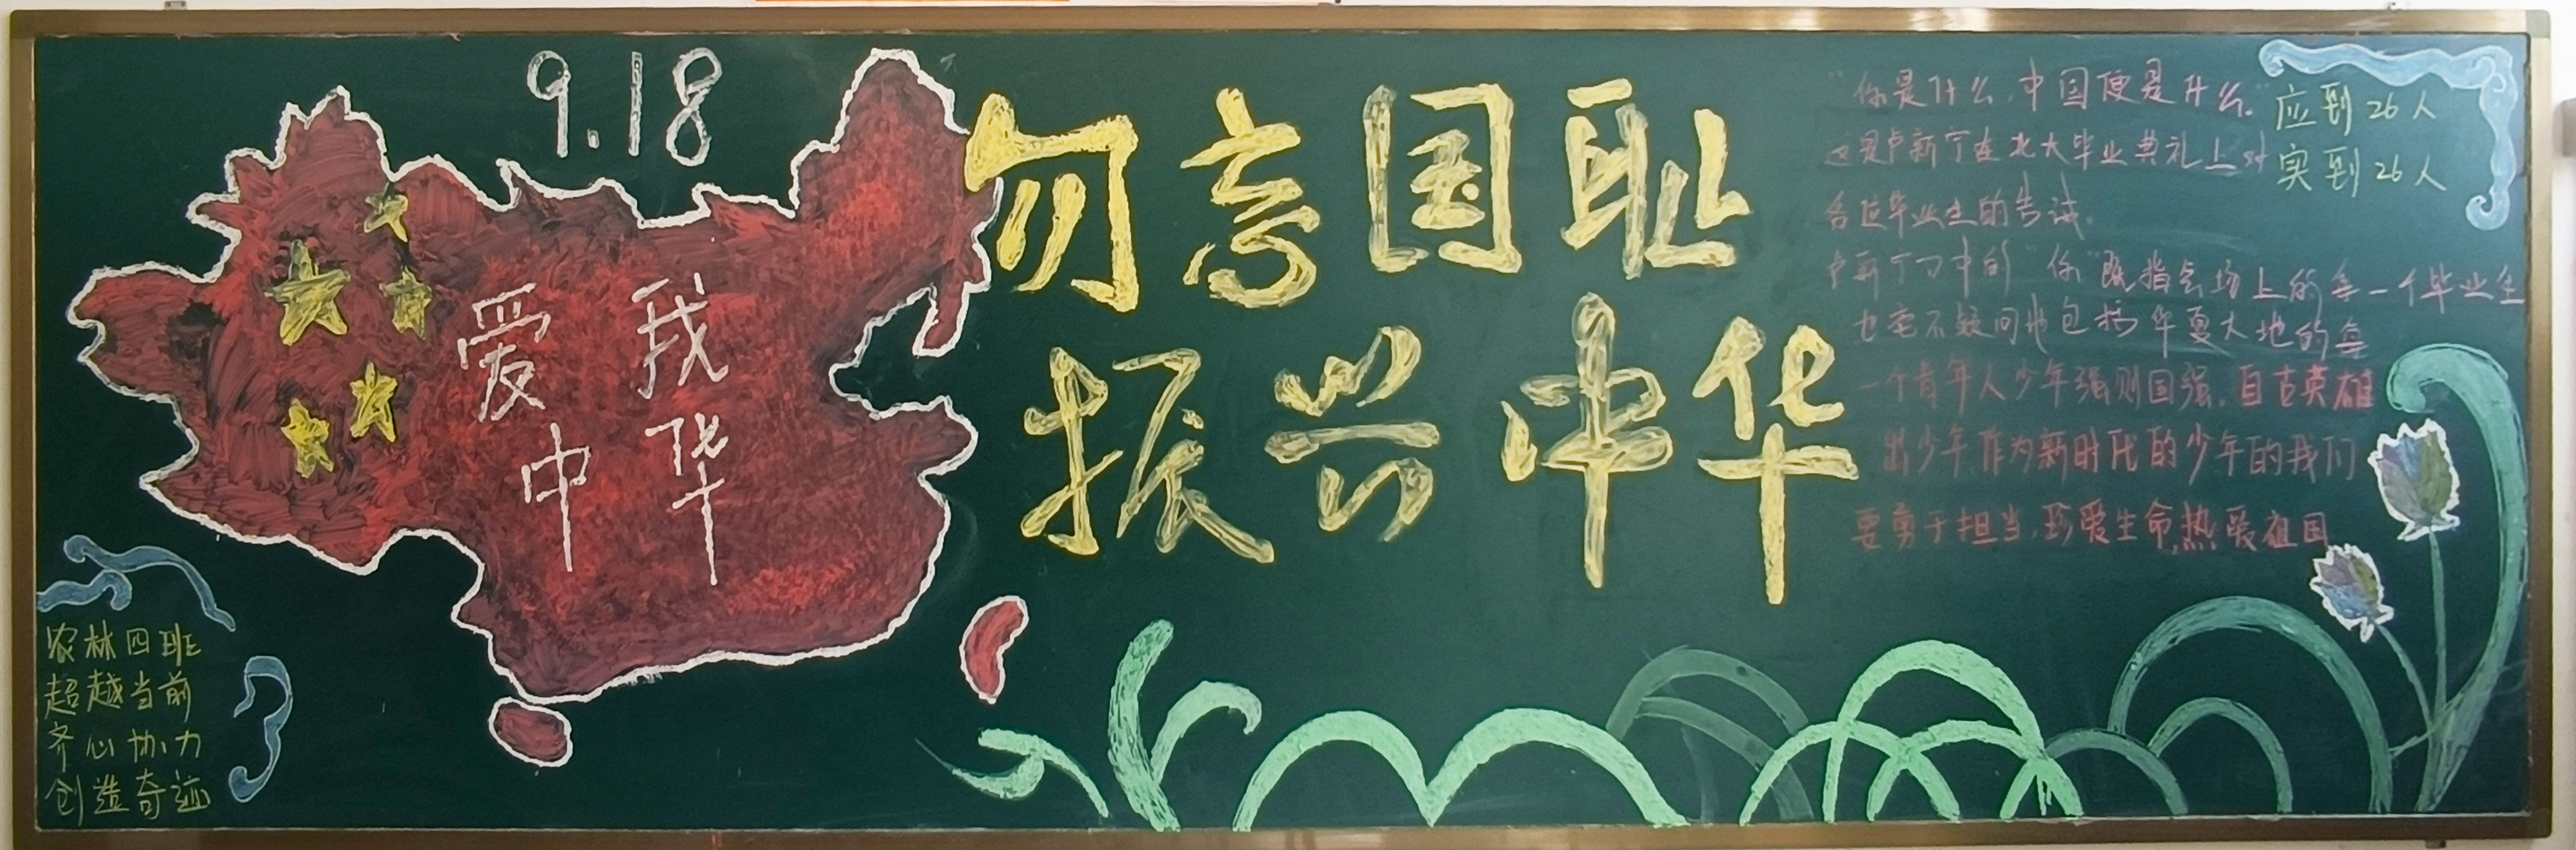 9.18
爱我
中华
勿忘国耻
振兴中华
"你是什么,中国便是什么."
这是卢新宁在北大毕业典礼上对
各位毕业生的告诫.
卢新宁口中的"你"既指会场上的每一个毕业生
也毫不疑问地包括华夏大地的每
一个青年人少年强则国强.自古英雄
出少年,作为新时代的少年的我们
要勇于担当,珍爱生命,热爱祖国
应到26人
实到26人
农林四班
超越当前
齐心协力
创造奇迹